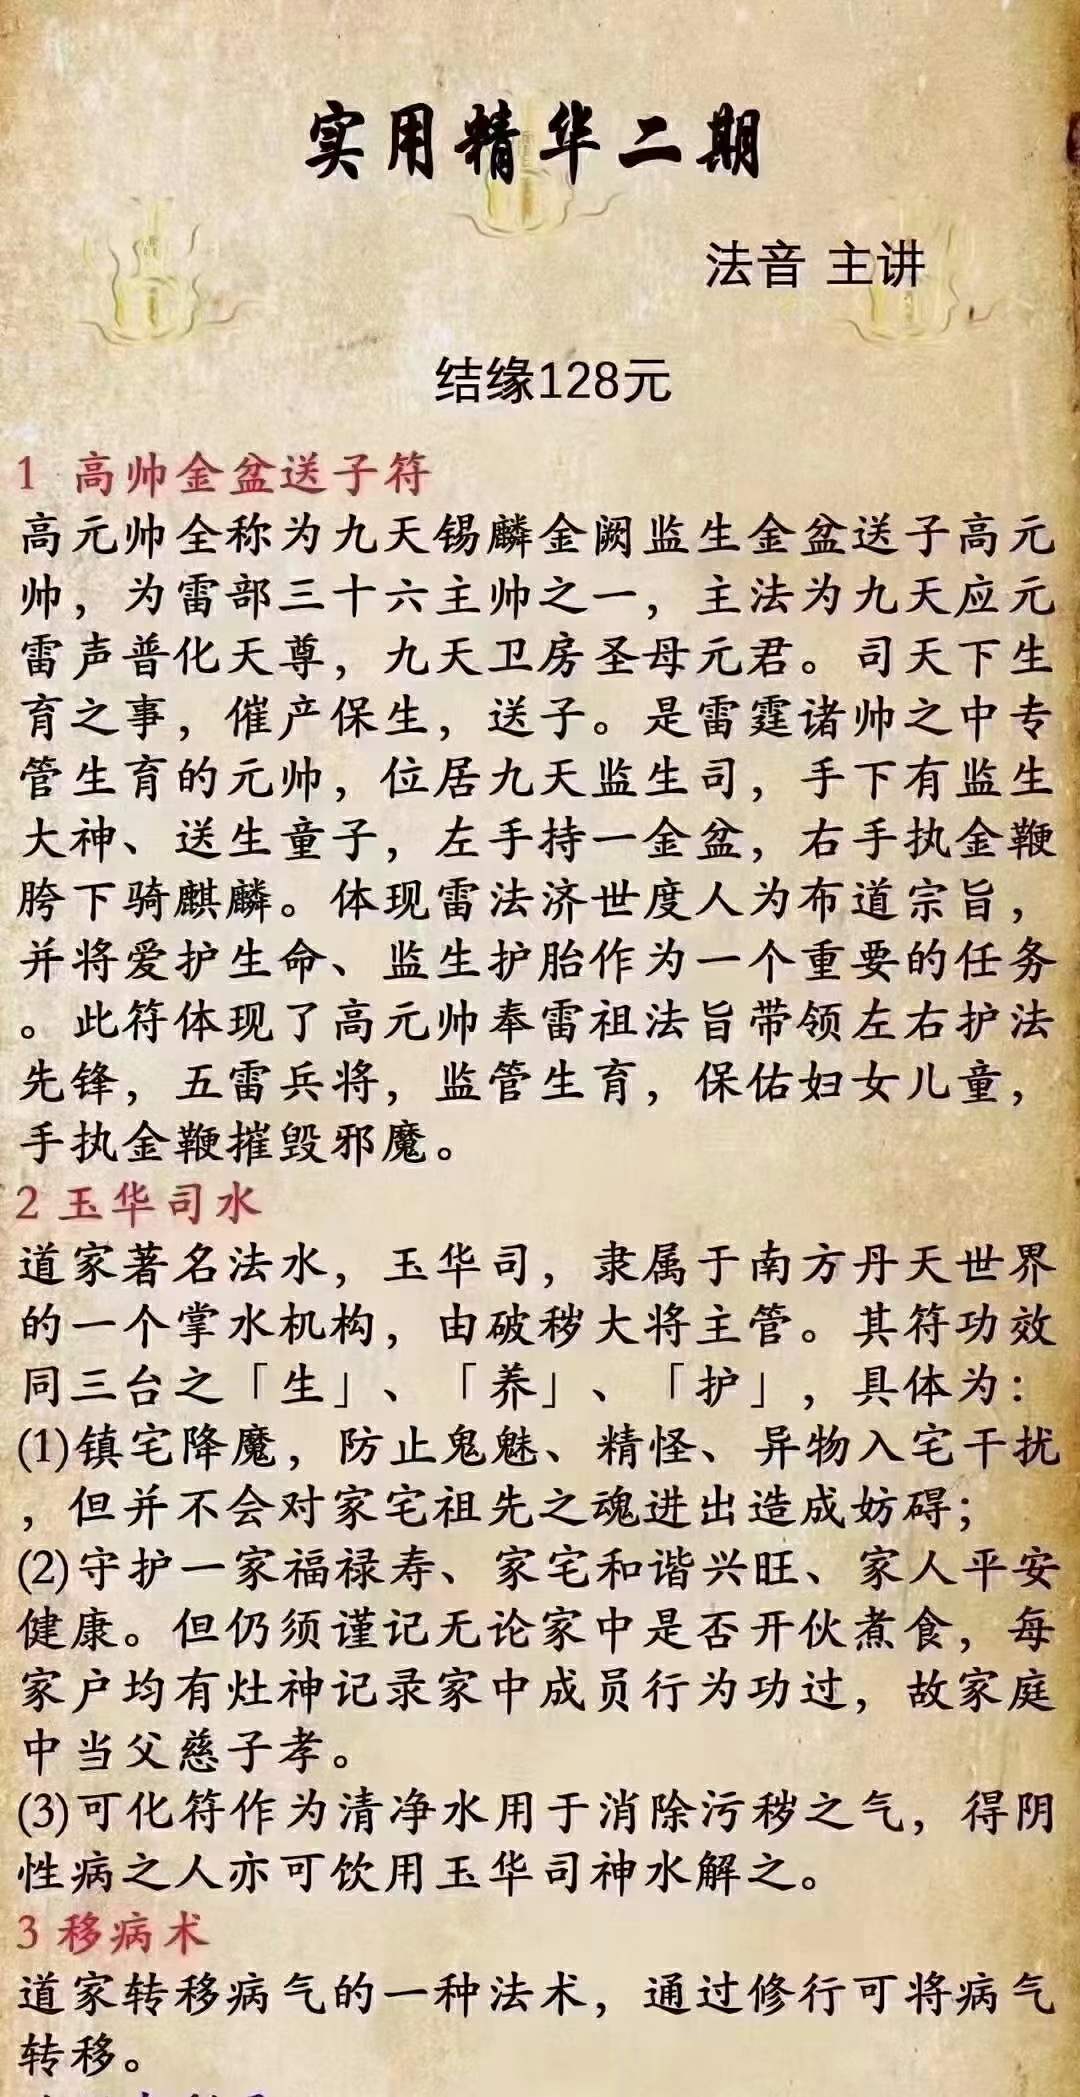 实用精华二期
法音 主讲
结缘128元
1 高帅金盆送子符
高元帅全称为九天锡麟金阙监生金盆送子高元
帅，为雷部三十六主帅之一，主法为九天应元
雷声普化天尊，九天卫房圣母元君。司天下生
育之事，催产保生，送子。是雷霆诸帅之中专
管生育的元帅，位居九天监生司，手下有监生
大神、送生童子，左手持一金盆，右手执金鞭
胯下骑麒麟。体现雷法济世度人为布道宗旨，
并将爱护生命、监生护胎作为一个重要的任务
。此符体现了高元帅奉雷祖法旨带领左右护法
先锋，五雷兵将，监管生育，保佑妇女儿童，
手执金鞭摧毁邪魔。
2 玉华司水
道家著名法水，玉华司，隶属于南方丹天世界
的一个掌水机构，由破秽大将主管。其符功效
同三台之「生」、「养」、「护」，具体为：
(1)镇宅降魔，防止鬼魅、精怪、异物入宅干扰
，但并不会对家宅祖先之魂进出造成妨碍；
(2)守护一家福禄寿、家宅和谐兴旺、家人平安
健康。但仍须谨记无论家中是否开伙煮食，每
家户均有灶神记录家中成员行为功过，故家庭
中当父慈子孝。
(3)可化符作为清净水用于消除污秽之气，得阴
性病之人亦可饮用玉华司神水解之。
3 移病术
道家转移病气的一种法术，通过修行可将病气
转移。